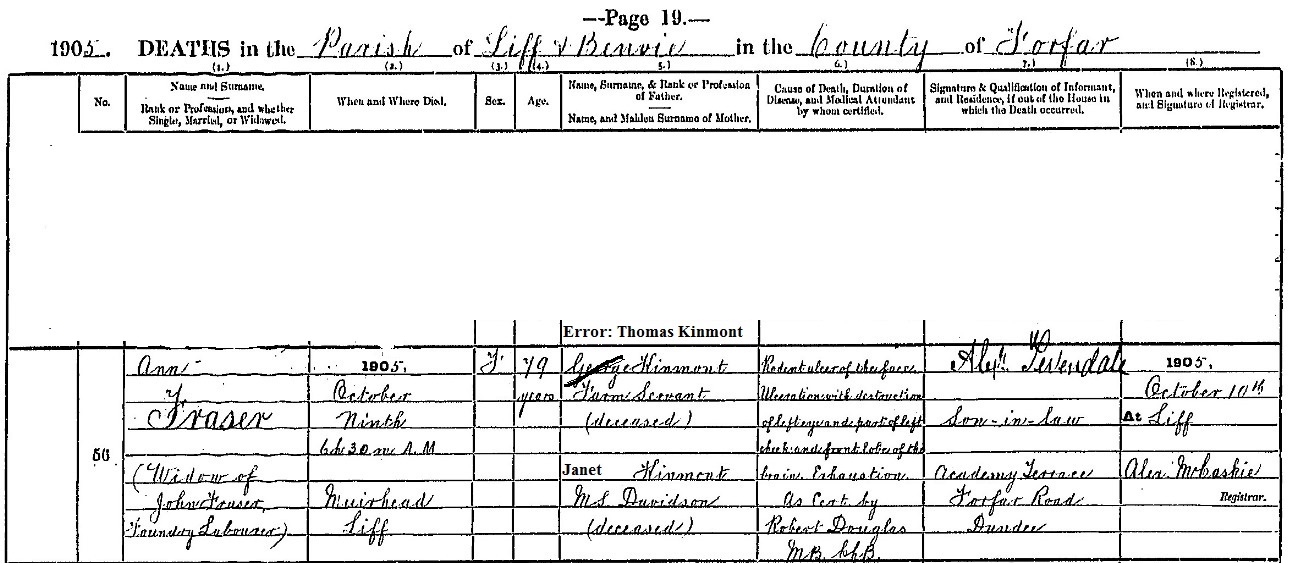 —Page 19.—
1905. DEATHS in the Parish of Liff & Benvie in the County of Forfar
(1.) (2.) (3.) (4.) 5.) 6.) 7.) (8.)
No.
Name and Surname.
Rank or Profession, and whether
Single, Married, or Widowed.
When and Where Died.
Sex.
Age.
Name, Surname, & Rank or Profession
of Father.
Name, and Maiden Surname of Mother.
Cause of Death, Duration of
Disease, and Medical Attendant
by whom certified.
Signature & Qualification of Informant,
and Residence, if out of the House in
which the Death occurred.
When and where Registered,
and Signature of Registrar.
50
Ann
Fraser
(Widow of
John Fraser,
Foundry Labourer)
1905.
October
Ninth
6h 30m A.M
Muirhead
Liff
F
79
years
Error: Thomas Kinmont
George Kinmont
Farm Servant
(deceased)
Janet Kinmont
M.S. Davidson
(deceased)
Rodent ulcer of the face.
Ulceration with destruction
of left eye and part of left
cheek and front lobe of the
brain. Exhaustion
As Cert by
Robert Douglas
M.B. Ch.B.
Alexr. Tevendale
Son-in-law
Academy Terrace
Forfar Road
Dundee
1905,
October 10th
At Liff
Alex. McCaskie
Registrar.